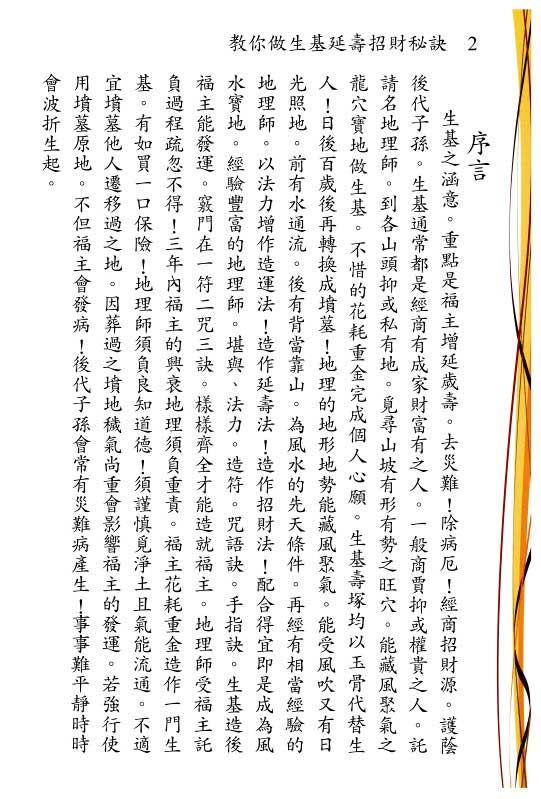 教你做生基延壽招財秘訣 2
序言
生基之涵意。重點是福主增延歲壽。去災難！除病厄！經商招財源。護蔭
後代子孫。生基通常都是經商有成家財富有之人。一般商賈抑或權貴之人。託
請名地理師。到各山頭抑或私有地。覓尋山坡有形有勢之旺穴。能藏風聚氣之
龍穴寶地做生基。不惜的花耗重金完成個人心願。生基壽塚均以玉骨代替生
人！日後百歲後再轉換成墳墓！地理的地形地勢能藏風聚氣。能受風吹又有日
光照地。前有水通流。後有背當靠山。為風水的先天條件。再經有相當經驗的
地理師。以法力增作造運法！造作延壽法！造作招財法！配合得宜即是成為風
水寶地。經驗豐富的地理師。堪輿、法力。造符。咒語訣。手指訣。生基造後
福主能發運。竅門在一符二咒三訣。樣樣齊全才能造就福主。地理師受福主託
負過程疏忽不得！三年內福主的興衰地理須負重責。福主花耗重金造作一門生
基。有如買一口保險！地理師須負良知道德！須謹慎覓淨土且氣能流通。不適
宜墳墓他人遷移過之地。因葬過之墳地穢氣尚重會影響福主的發運。若強行使
用墳墓原地。不但福主會發病！後代子孫會常有災難病產生！事事難平靜時時
會波折生起。